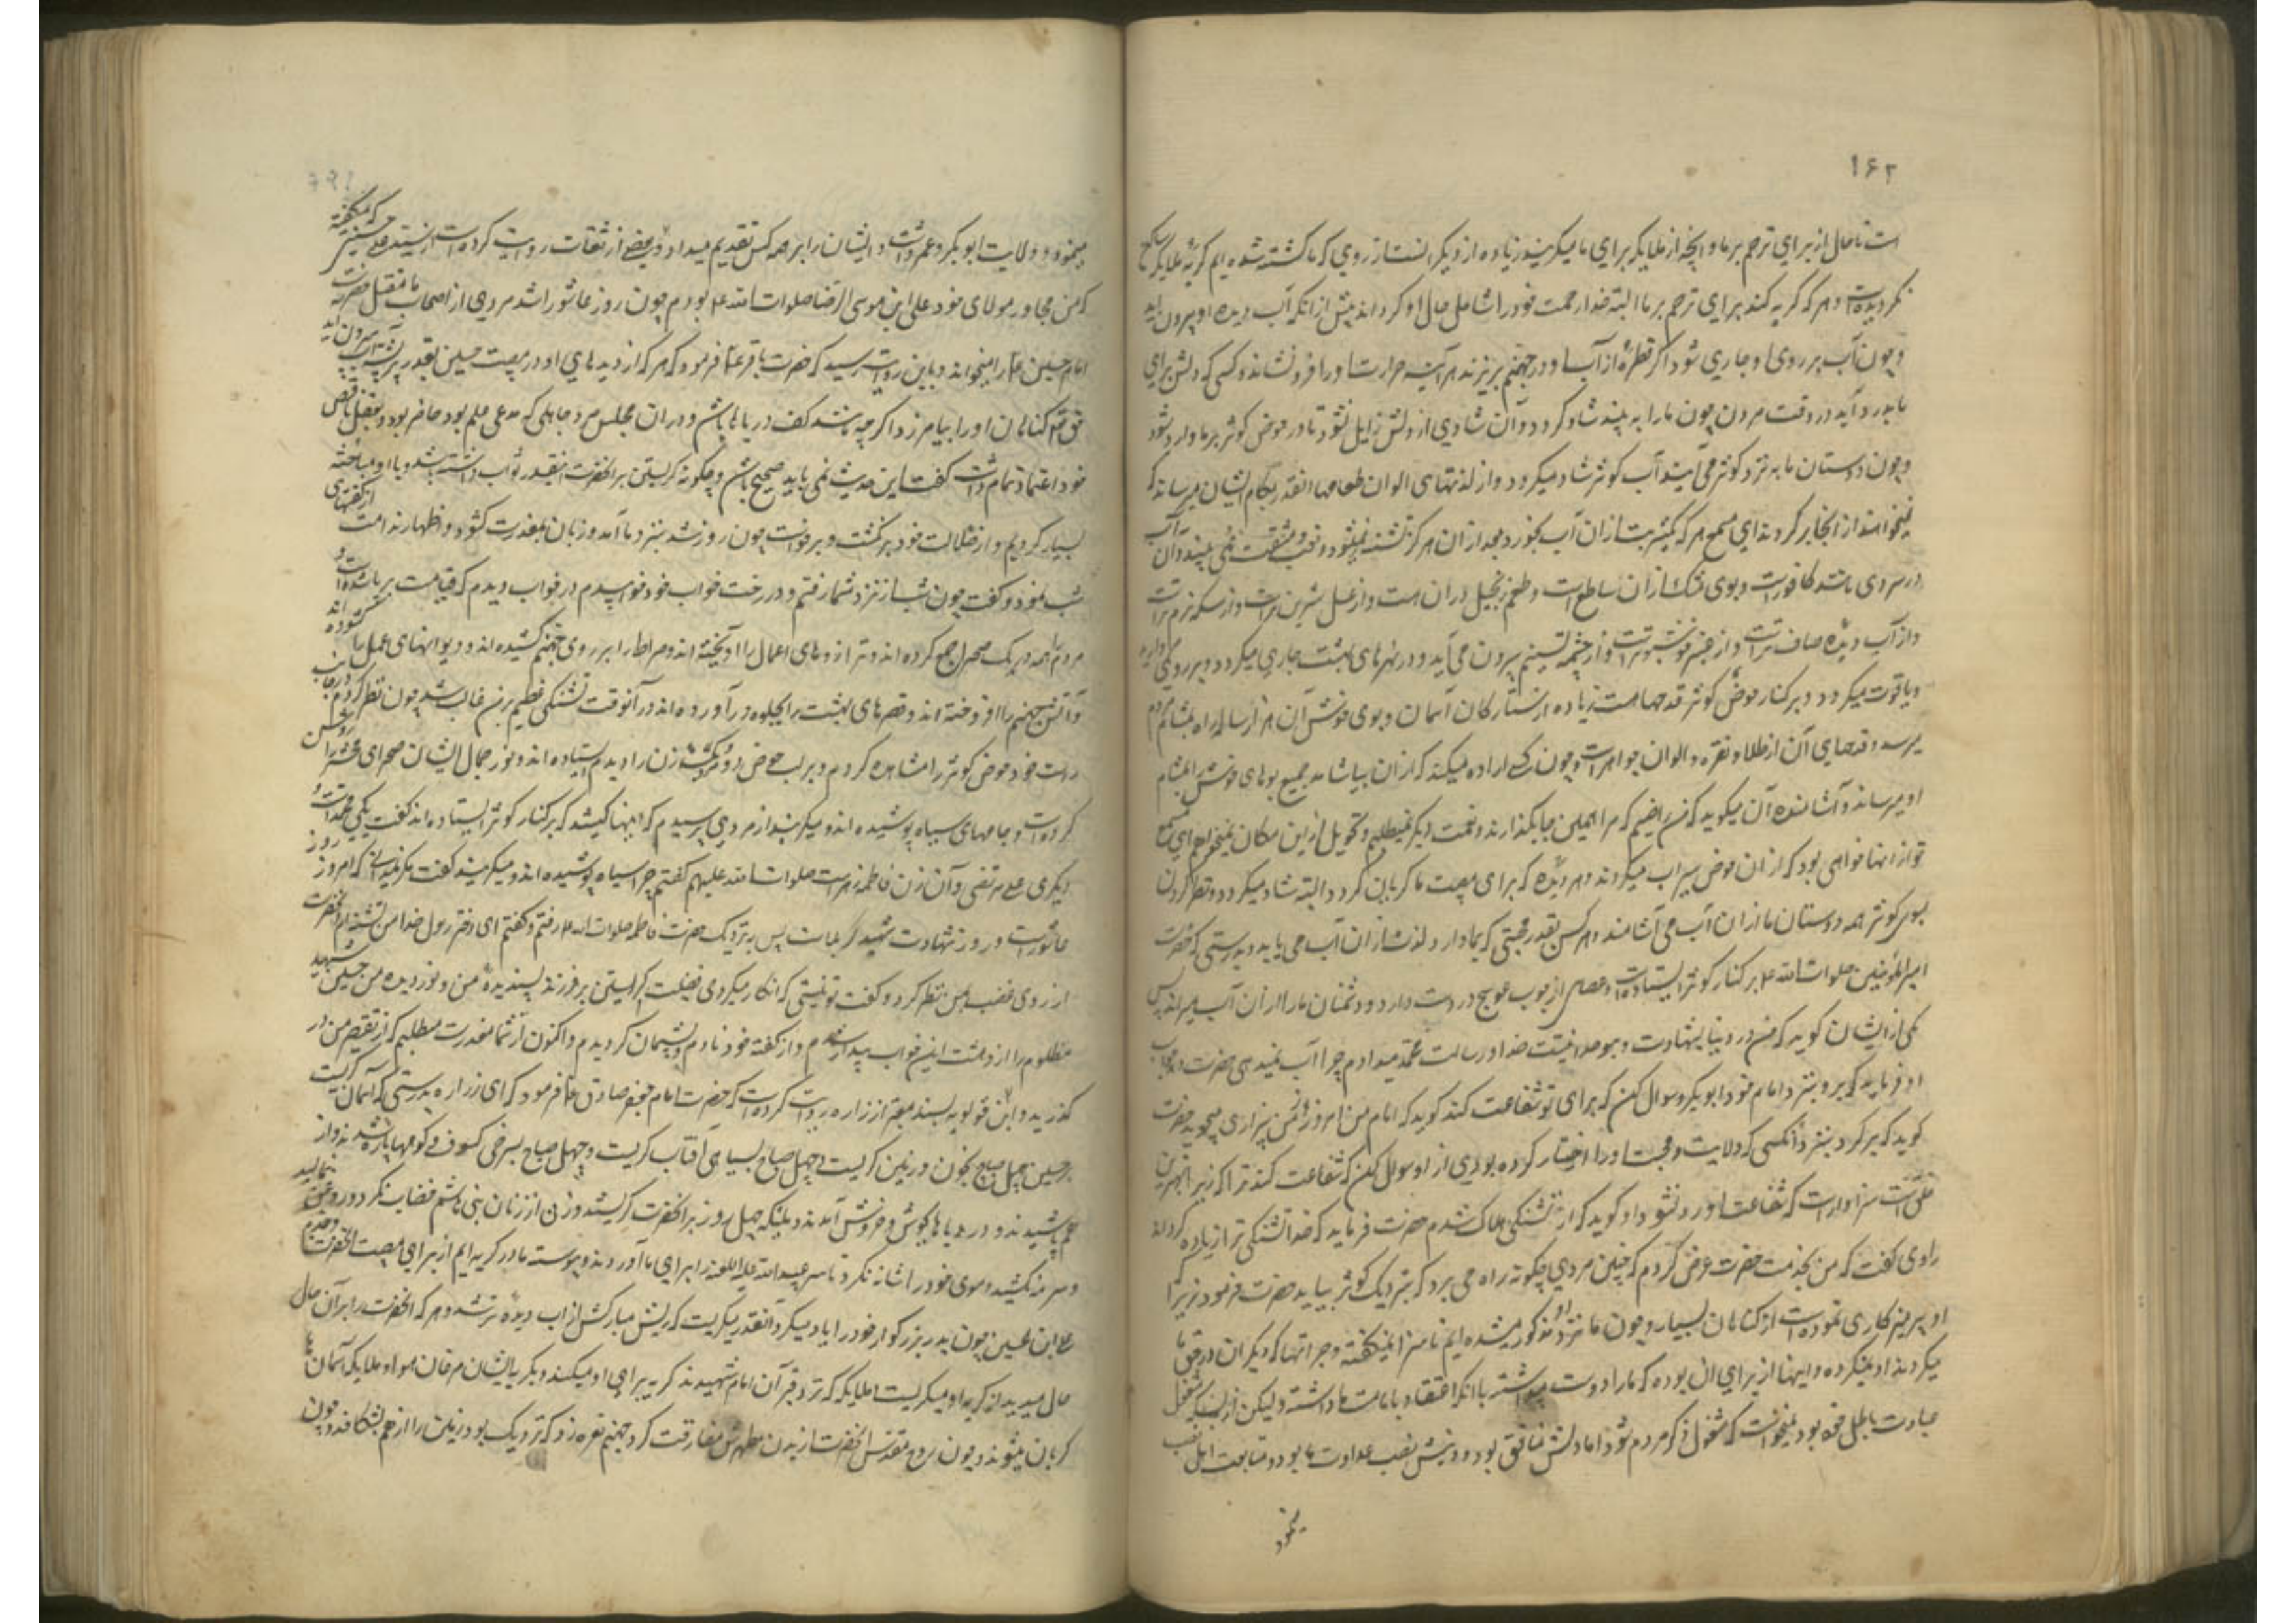 ۱۶۲
است تا حال از برای ترحم بر ما و آنچه از ملایکه برای ما میگریند زیاده از دیگرانست از روزی که ما کشته شده ایم گریهٔ ملایکه ساکن
نگردیده است و هر که گریه کند برای ترحم بر ما البته خدا رحمت خود را شامل حال او گرداند پیش از آنکه آب دیده او بیرون آید
و چون آب بر روی او جاری شود اگر قطرهٔ از آب او در جهنم بریزند هر آینه حرارت او را فرو نشاند و کسی که دلش برای
ما بدرد آید در وقت مردن چون ما را به بیند شاد گردد و آن شادی از دلش زایل نشود تا در حوض کوثر بر ما وارد شود
و چون دوستان ما به نزد کوثر می آیند آب کوثر شاد میگردد و از لذتهای الوان طعامها آنقدر بکام ایشان میرساند که
نمیخواهند از آنجا برگردند ای مسمع هر که یکشربت از آن آب بخورد بعد از آن هرگز تشنه نمیشود و تعب و مشقت نمی بیند و آن آب
در سردی مانند کافور است و بوی مشک از آن ساطع است و طعم زنجبیل در آن هست و از عسل شیرین تر است و از مسکه نرم تر است
و از آب دیده صاف تر است و از عنبر خوشبوتر است و از چشمه تسنیم بیرون می آید و در نهرهای بهشت جاری میگردد و بر روی مروارید
و یاقوت میگردد و بر کنار حوض کوثر قدحها هست زیاده از ستارگان آسمان و بوی خوش آن هزار ساله راه بمشام مردم
میرسد و قدحهای آن از طلا و نقره و الوان جواهر است و چون کسی اراده میکند که از آن بیاشامد جمیع بوهای خوش را بمشام
او میرساند و آشامنده آن میگوید که من راضیم که مرا همین جا بگذارند و نعمت دیگر نمیطلبم و تحویل از این مکان نمیخواهم ای مسمع
تو از آنها خواهی بود که از آن حوض سیراب میگردند و هر دیدهٔ که برای مصیبت ما گریان گردد البته شاد میگردد و نظر کردن
بسوی کوثر همه دوستان ما از آن آب می آشامند و هر کس بقدر محبتی که بما دارد لذت از آن آب می یابد و بدرستی که حضرت
امیر المؤمنین صلوات الله علیه بر کنار کوثر ایستاده است و عصایی از چوب عوسج در دست دارد و دشمنان ما را از آن آب میراند پس
یکی از ایشان گوید که من در دنیا بشهادت وحدانیت خدا و رسالت محمد میدادم چرا آب نمیدهی حضرت در جواب
او فرماید که برو بنزد امام خود ابوبکر و سوال کن که برای تو شفاعت کند گوید که امام من امروز از من بیزاری میجوید حضرت
گوید که برگرد بنزد آنکسی که ولایت و محبت او را اختیار کرده بودی از او سوال کن که شفاعت کند ترا که زیرا بهترین
خلق است سزاوار است که شفاعت او رد نشود او گوید که از تشنگی هلاک شدم حضرت فرماید که خدا تشنگی ترا زیاده گرداند
راوی گفت که من بخدمت حضرت عرض کردم که چنین مردی چگونه راه می برد که بنزدیک کوثر بیاید حضرت فرمود زیرا
او پرهیزکاری نموده است از گناهان بسیار و چون ما نزد او مذکور میشده ایم ناسزا نمیگفته و جراتها که دیگران در حق ما
میکردند او نمیکرده و اینها از برای آن بوده که ما را دوست میداشته یا آنکه اعتقاد بامامت ما داشته و لیکن از بسیاری شغل
عبادت باطل خود بود نمیخواست که مشغول ذکر مردم شود اما دلش منافق بود و دینش نصب عداوت ما بود و متابعت اهل نصب
مینمود
مینمود و ولایت ابوبکر و عمر داشت و ایشان را بر همه کس تقدیم میداد و بعضی از ثقات روایت کرده است از سید علی حسینی که میگفت
که من مجاور مولای خود علی ابن موسی الرضا صلوات الله علیه بودم چون روز عاشورا شد مردی از اصحاب ما مقتل حضرت
امام حسین علیه را میخواند و باین روایت رسید که حضرت باقر علیه فرمود که هر که از دیده های او در مصیبت حسین بقدر پر پشه آب بیرون آید
حق تعالی گناهان او را بیامرزد اگر چه مانند کف دریاها باشد و در آن مجلس مرد جاهلی که مدعی علم بود حاضر بود و بعقل ناقص
خود اعتماد تمام داشت گفت این حدیث نمی باید صحیح باشد و چگونه گریستن بر آنحضرت اینقدر ثواب داشته باشد و با او مباحثه
بسیار کردیم و از ضلالت خود برنگشت و برخواست چون روز شد بنزد ما آمد و زبان بمعذرت گشود و اظهار ندامت از گفتهای
شب نمود و گفت چون شب از نزد شما رفتم و در رخت خواب خود خوابیدم در خواب دیدم که قیامت بر پا شده است و
مردم همه در یک صحرا جمع کرده اند و ترازوهای اعمال را آویخته اند و صراط را بر روی جهنم کشیده اند و دیوانهای عمل را گشوده اند
و آتش جهنم را افروخته اند و قصرهای بهشت را بجلوه در آورده اند در آنوقت تشنگی عظیم بر من غالب شد چون نظر کردم در جانب
راست خود حوض کوثر را مشاهده کردم و بر لب حوض دو مرد و یک زن را دیدم ایستاده اند و نور جمال ایشان صحرای محشر را روشن
کرده است و جامهای سیاه پوشیده اند و میگریند از مردی پرسیدم که اینها کیستند که بر کنار کوثر ایستاده اند گفت یکی محمد است و
دیگری علی مرتضی و آن زن فاطمه زهراست صلوات الله علیهم گفتم چرا سیاه پوشیده اند و میگریند گفت مگر نمیدانی که امروز روز
عاشورا است و روز شهادت شهید کربلاست پس بنزدیک حضرت فاطمه صلوات الله علیها رفتم و گفتم ای دختر رسول خدا من تشنه ام آنحضرت
از روی غضب بمن نظر کرد و گفت تو نیستی که انکار میکردی فضیلت گریستن بر فرزند پسندیدهٔ من و نور دیده من حسین شهید
مظلوم را از دهشت این خواب بیدار شدم و از گفته خود نادم و پشیمان گردیدم و اکنون از شما معذرت میطلبم که از تقصیر من در
گذرید و ابن قولویه بسند معتبر از زراره روایت کرده است که حضرت امام جعفر صادق علیه فرمود که ای زراره بدرستی که آسمان گریست
بر حسین چهل صباح بخون و زمین گریست چهل صباح بسیاهی و آفتاب گریست چهل صباح بسرخی و کسوف و کوهها پاره شدند و از
هم پاشیدند و دریاها بجوش و خروش آمدند و ملائکه چهل روز بر آنحضرت گریستند و زنی از زنان بنی هاشم خضاب نکرد و روغن بخود نمالید
و سرمه نکشید و موی خود را شانه نکرد تا سر عبید الله علیه اللعنه را برای ما آوردند و پیوسته ما در گریه ایم از برای مصیبت آنحضرت و جدم
علی ابن الحسین چون پدر بزرگوار خود را یاد میکرد آنقدر میگریست که ریش مبارکش از آب دیده تر شد و هر که آنحضرت را بر آن حال
حال میدید از گریه او میگریست و ملایکه که نزد قبر آن امام شهیدند گریه برای او میکنند و بگریه ایشان مرغان هوا و ملایکه آسمان ها
گریان میشوند و چون روح مقدس آنحضرت از بدن مطهرش مفارقت کرد جهنم نعره زد که نزدیک بود زمین را از هم بشکافد و چون